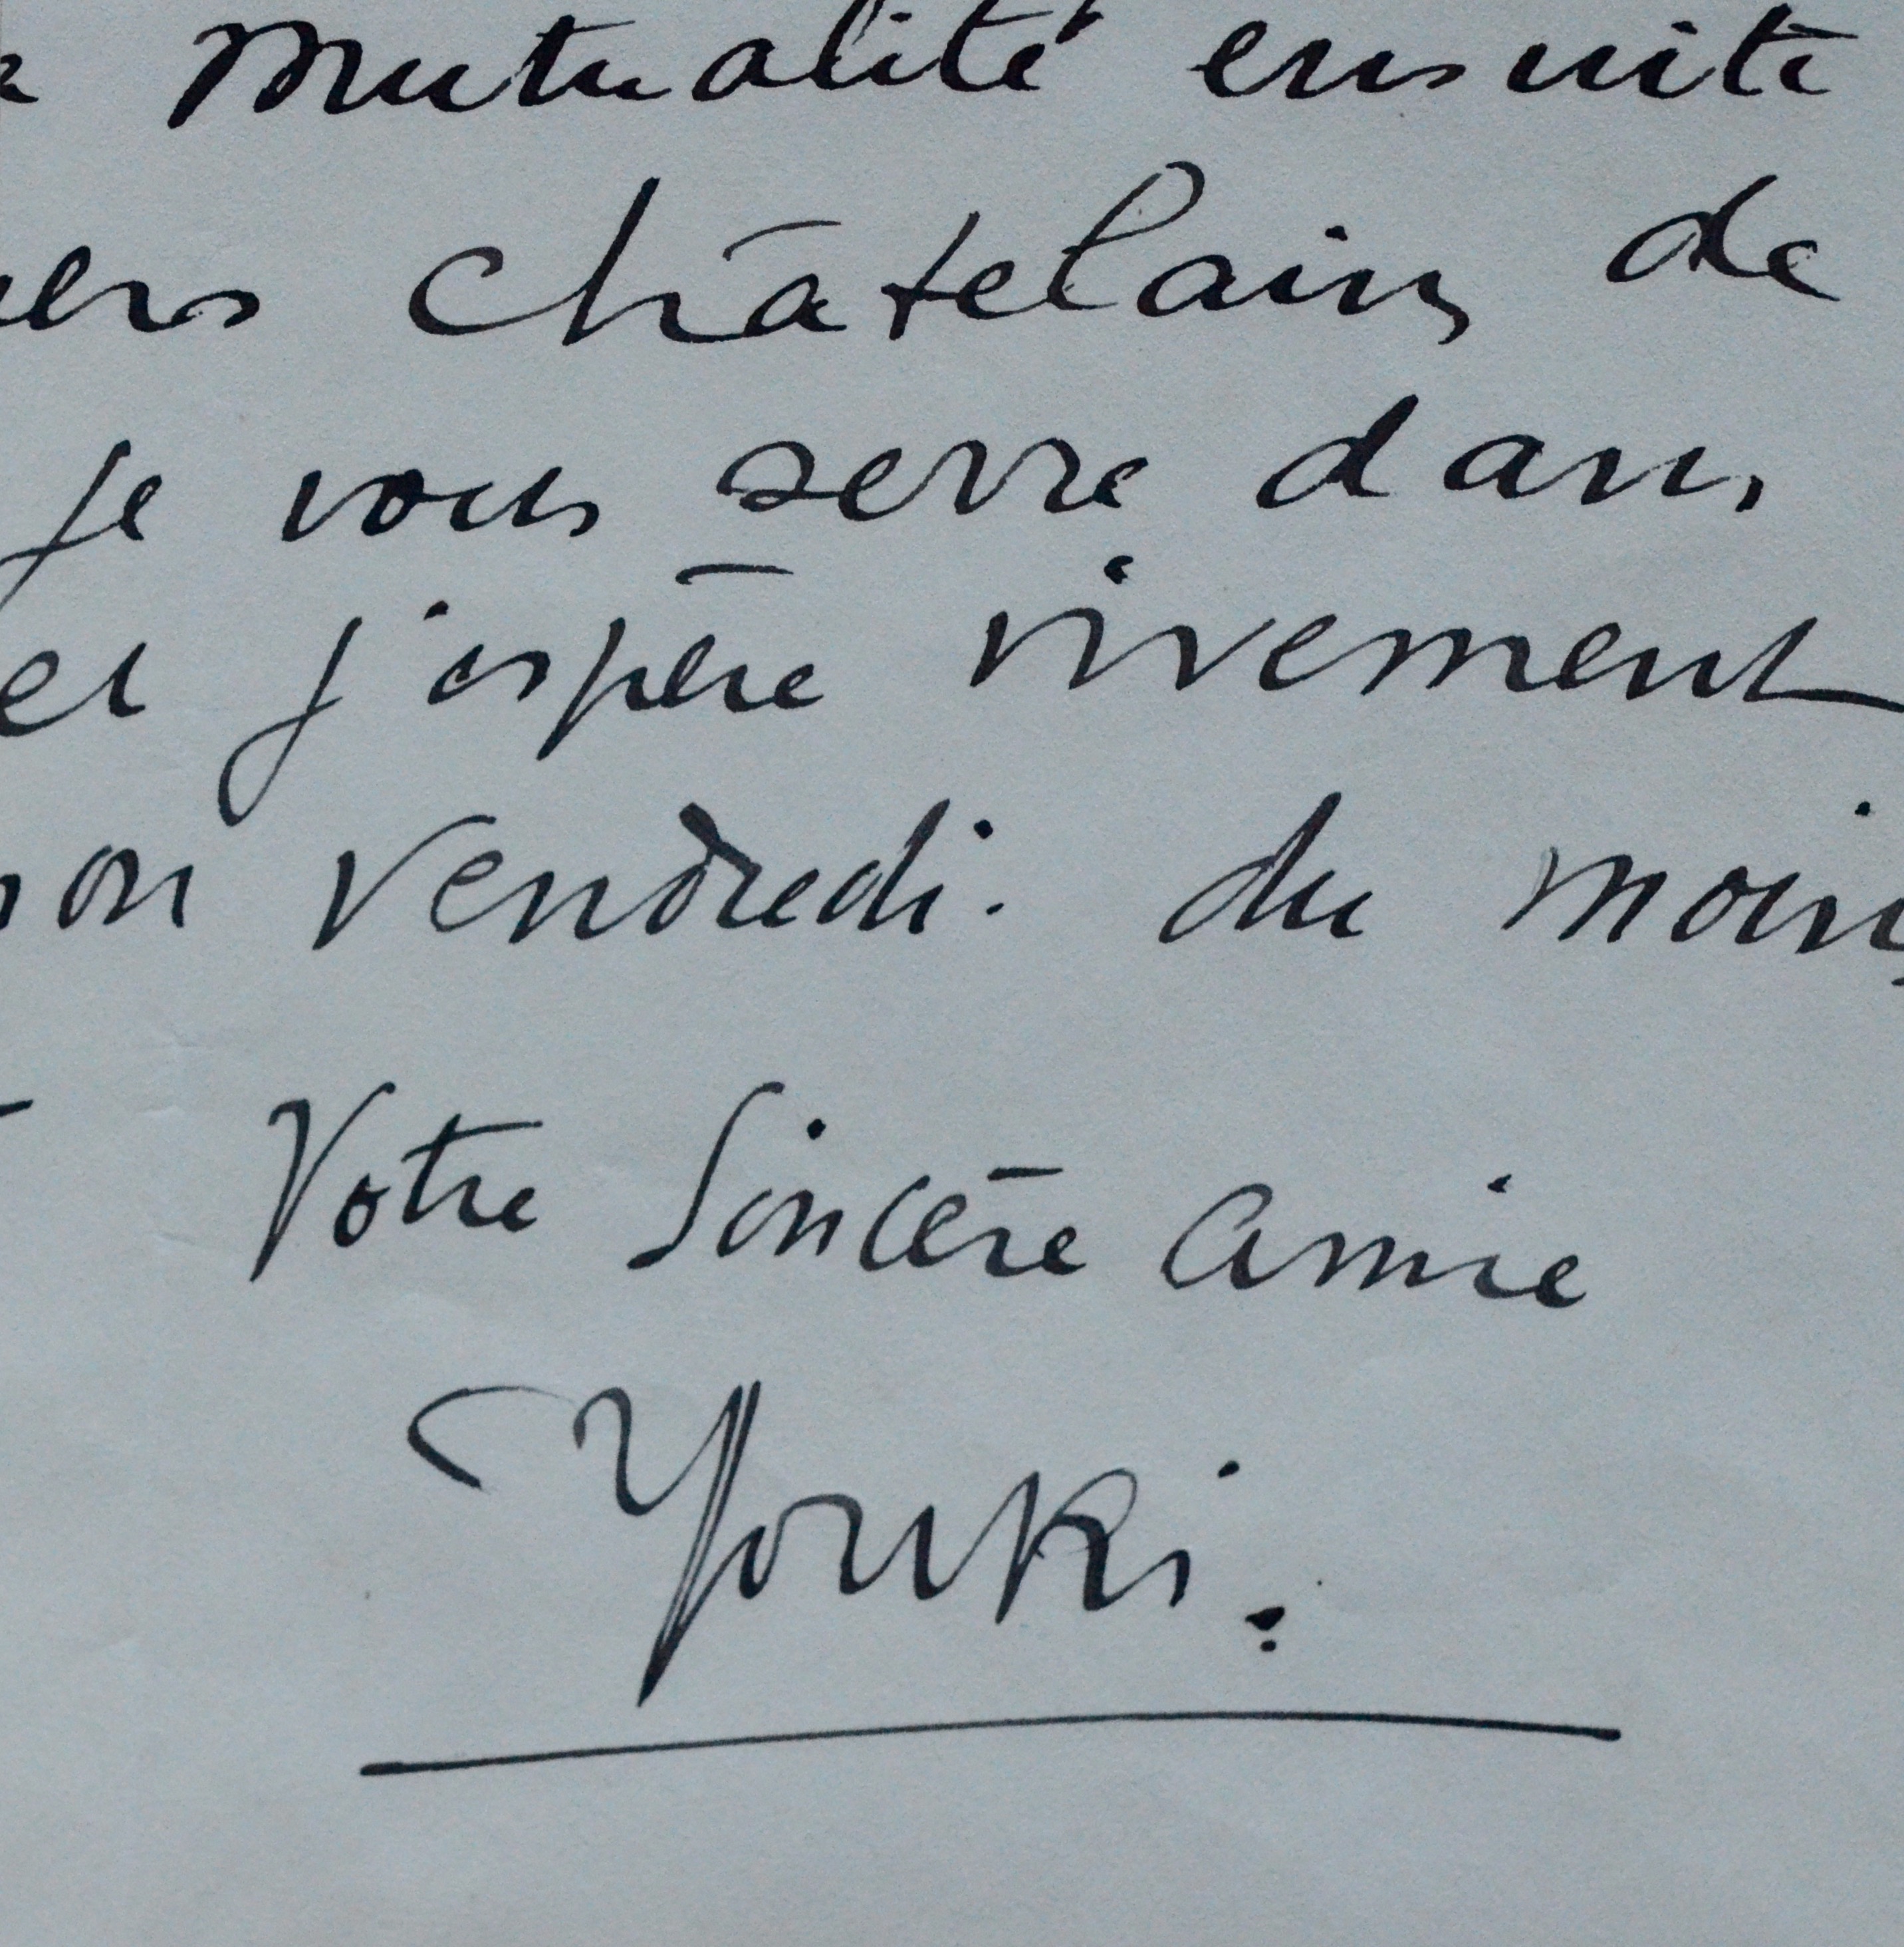 Mutualité ensuite
châtelains de
je vous serre dans
et j'espère vivement
non vendredi. du moins
Votre Sincère Amie
Youki.